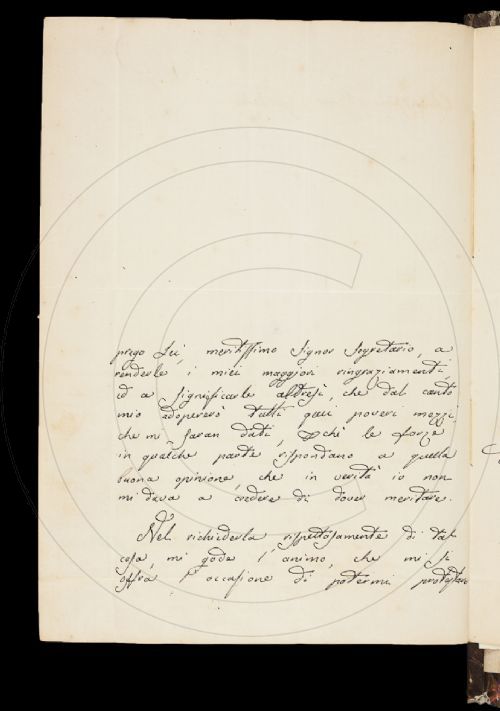 prego Lei, meritissimo Signor Segretario, a
renderle i miei maggiori ringraziamenti,
ed a significarle altresì, che dal canto
mio adopererò tutti quei poveri mezzi,
che mi saran dati, perchè le forze
in qualche parte rispondano a quella
buona opinione che in verità io non
mi dava a credere di dover meritare.
Nel richiederla rispettosamente di tal
cosa, mi gode l'animo, che mi si
offra l'occasione di potermi protestare